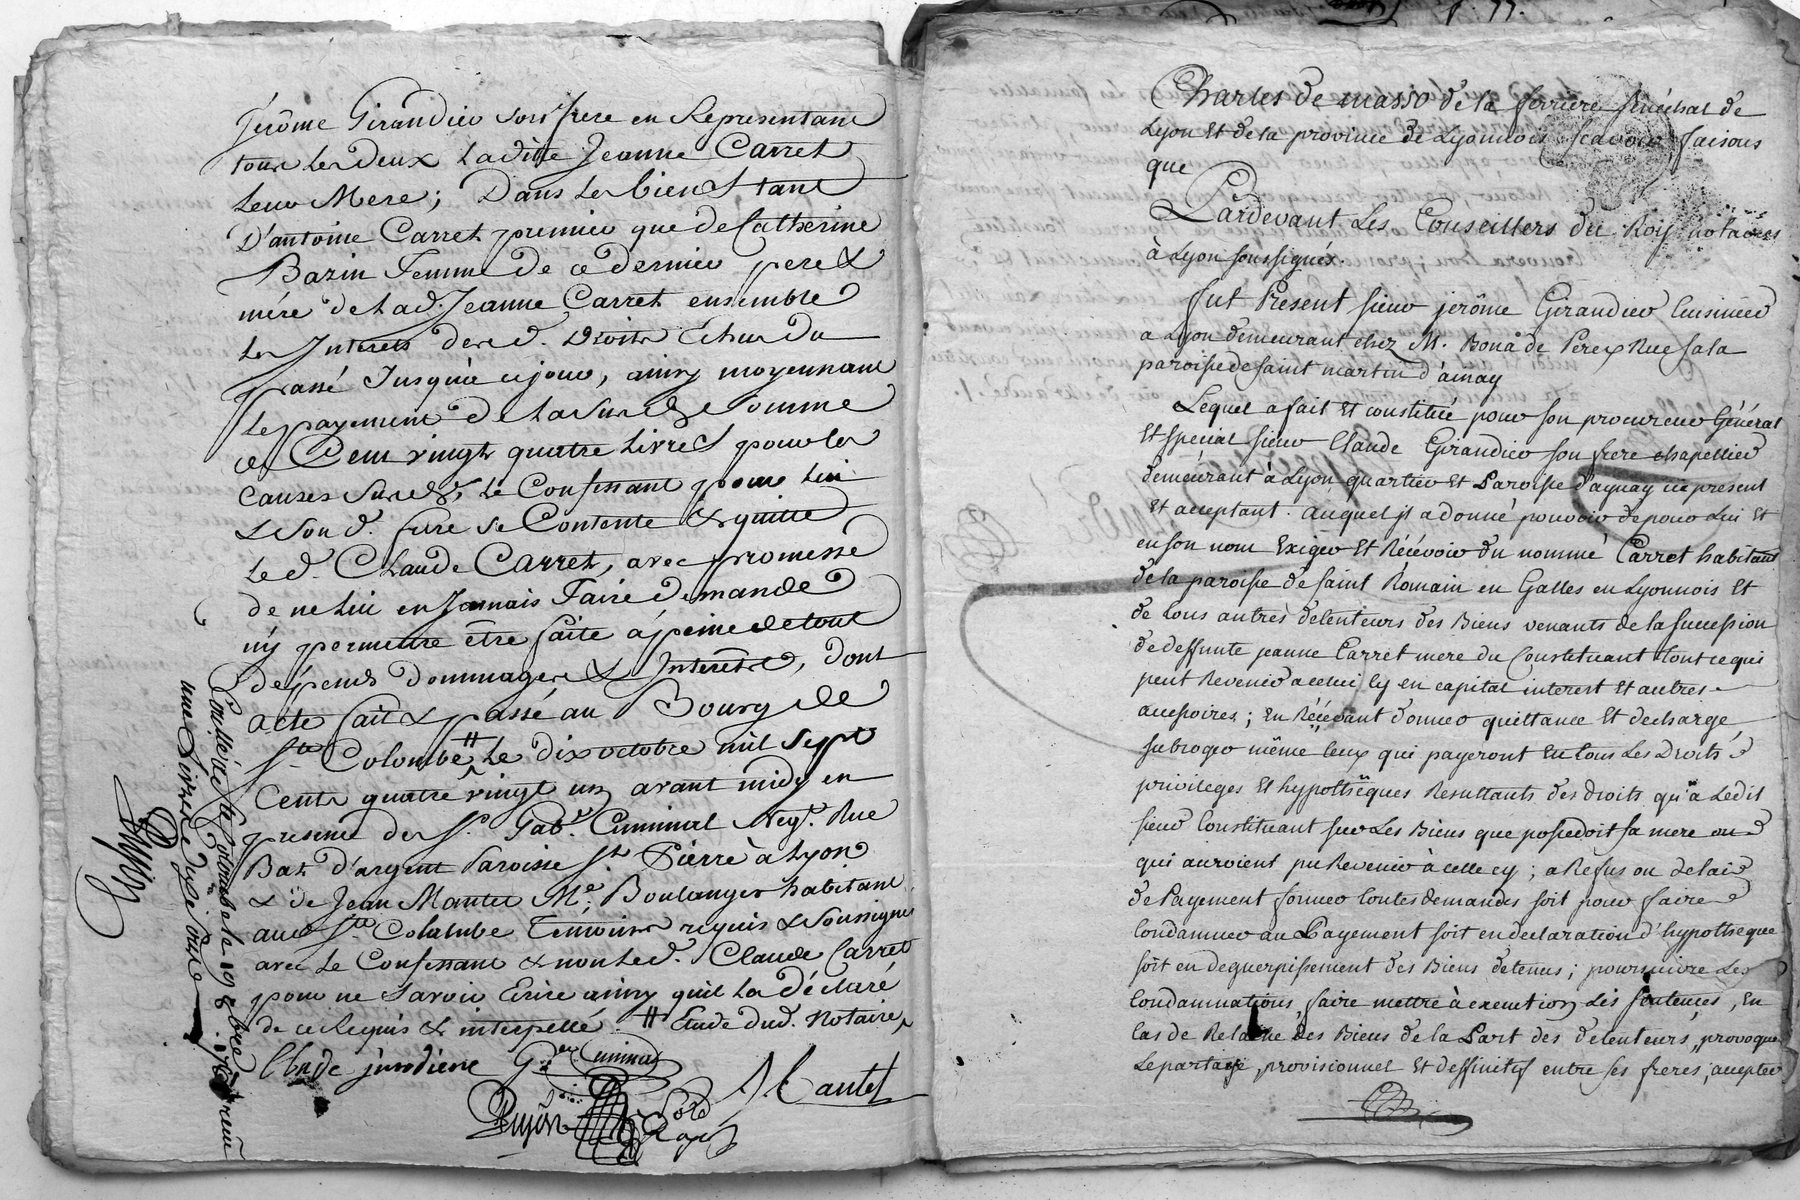 Jérôme Girandier son frere en Representant
tous les deux Laditte Jeanne Carret
Leur Mere; Dans les biens tant
D'antoine Carret premier que de Catherine
Bazin Femme de ce dernier pere &
mére de Lad. Jeanne Carret ensemble
Les Interets desd. Droits Echus du
passé Jusqu'à ce jour, ainsy moyennant
le payement de la susd. Somme
de Cent vingt quatre Livres pour les
Causes Susd. Le Confessant pour lui
& Son d. frere se Contente & quitte
Le d. Claude Carret, avec promesse
de ne lui en Jamais Faire Demande
ny permettre être faite à peine de tout
dépends Dommages & Interêts, dont
acte fait & passé au Bourg de
Ste Colombe # Le dix octobre mil Sept
Cents quatre vingt un avant midy en
presence de Sr. Gab. Ciminal Neg. Rue
Bat d'argent Paroisse St Pierre à Lyon
& de Jean Mantel Me. Boulanger habitant
aud Ste Colombe Temoins requis & Soussignés
avec Le Confessant & non Led. Claude Carret
pour ne Savoir Ecrire ainsy qu'il L'a déclaré
de ce Requis & interpellé. # Etude dud. Notaire
Claude jirandiere
Controllé à Ste Colombe le 19 8bre 178 reçu
une Livre dix Sols
p. 77.
Charles de masso de la ferriere senéchal de
Lyon Et de la province de Lyonnois scavoir faisons
que
Pardevant Les Conseillers du Roy notaires
à Lyon soussignés.
fut Present sieur jerôme Girandier Cuisinier
a Lyon demeurant chez M. Bona de Perex Rue Sala
paroisse de saint martin d'ainay
Lequel a fait Et constitué pour son procureur Général
Et spécial sieur Claude Girandier son frere chapellier
demeurant à Lyon quartier Et Paroisse d'aynay icy present
Et acceptant. auquel jl a donné pouvoir de pour Lui Et
en son nom Exiger Et Récévoir du nommé Carret habitant
de la paroisse de saint Romain en Galles en Lyonnois Et
de tous autres detenteurs des Biens venants de la succession
de deffunte jeanne Carret mere du Constituant tout ce qui
peut Revenir a celui cy en capital interest Et autres
accessoires; En Récévant donner quittance Et decharge,
subroger même ceux qui payeront En tous Les Droits
privileges Et hypotheques Resultants des droits qu'a Ledit
sieur Constituant sur Les Biens que possedoit sa mere ou
qui auroient pu Revenir à celle cy; a Refus ou delais
de Payement former toutes demandes soit pour faire
Condamner au Payement soit en declaration d'hypotheque
soit en deguerpissement des Biens detenus; poursuivre Les
Condamnations, faire mettre à execution Les sentences, En
cas de Relache des Biens de la Part des detenteurs, provoquer
Le partage, provisionnel Et deffinitif entre ses freres, accepter